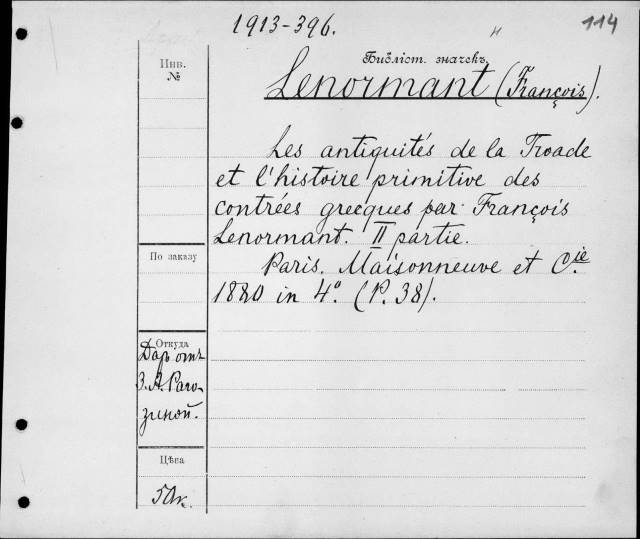 1913-396.
114
Библіот. значекъ
Инв.
№
Lenormant (François).
Les antiquités de la Troade
et l'histoire primitive des
contrées grecques par François
Lenormant. II partie.
По заказу
Paris. Maisonneuve et Cie.
1880 in 4º. (P. 38).
Откуда
Даръ отъ
З. А. Раго-
зиной.
Цѣна
50к.